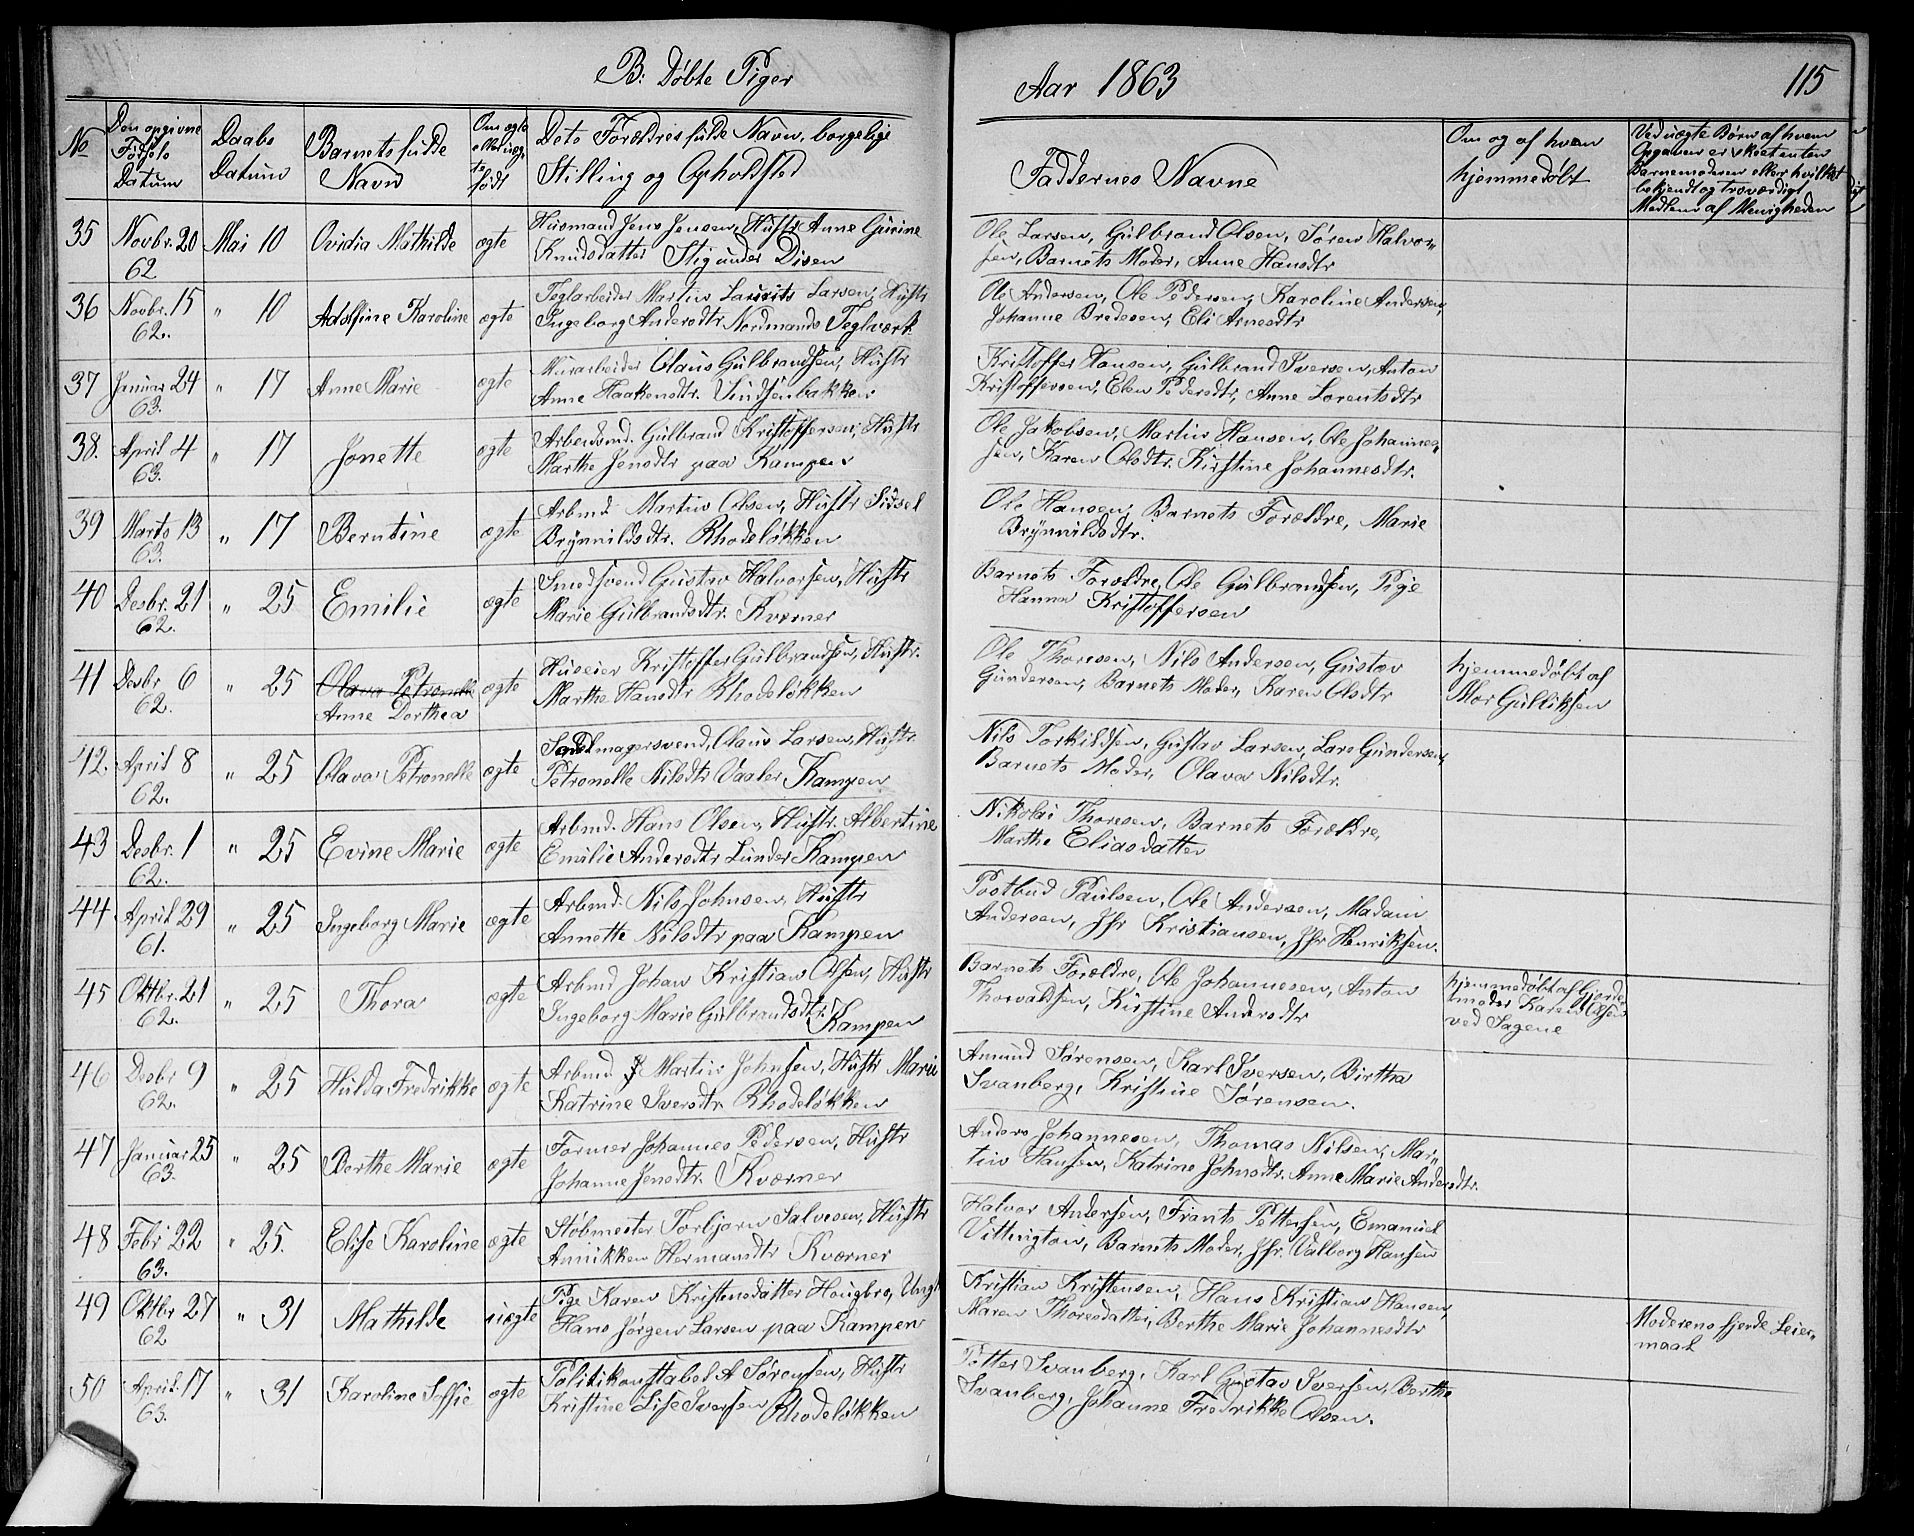 B. Døbte Piger
Aar 1863
115
No
Den opgivne Fødsels Datum
Daabs Datum
Barnets fulde Navn
Om ægte eller uægte født
Dets Forældres fulde Navn, borgelige Stilling og Opholdsted
Faddernes Navne
Om og af hvem hjemmedøbt
Ved uægte Børn af hvem
Opgaven er skeet enten
Barnemoderen eller hvilket
bekjendt og troværdigt
Medlem af Menigheden
35 Novbr. 20 62 Mai 10 Ovidia Mathilde ægte Husmand Jens Jensen, Hustr Anne Gurine
Knudsdatter Stig under Disen
Ole Larsen, Gulbrand Olsen, Søren Halvor-
sen, Barnets Moder, Anne Hansdtr
36 Novbr. 15 62. " 10 Adolfine Karoline ægte Teglarbeider Martin Laurits Larsen, Hustr
Ingeborg Andersdtr Nordmands Teglværk.
Ole Andersen, Ole Pedersen, Karoline Andersen,
Johanne Bredesen, Eli Arnesdtr
37 Januar 24 63. " 17 Anne Marie ægte Murarbeider Olaus Gulbrandsen, Hustr
Anne Haakensdtr.
Kristoffer Hansen, Gulbrand Iversen, Anton
Kristoffersen, Elen Pedersdtr, Anne Lorentsdtr
38. April 4 63. " 17 Jonette ægte Arbeidsmd. Gulbrand Kristoffersen, Hustr
Marthe Jensdtr paa Kampen
Ole Jakobsen, Martin Hansen, Ole Johannes-
sen, Karen Olsdtr. Kirstine Johannesdtr.
39 Marts 13 63. " 17 Berntine ægte Arbmd. Martin Olsen, Hustr Sissel
Brynnildsdtr. Rhodeløkken
Ole Hansen, Barnets Forældre, Marie
Brynnildsdtr.
40 Desbr. 21 62. " 25 Emilie ægte Smedsvend Gustav Halvorsen, Hustr
Marie Gulbrandsdtr. Kværner
Barnets Forældre, Ole Gulbrandsen, Pige
Hanna Kristoffersen
41 Desbr 6 62. " 25 Olava Petronelle
Anne Dorthea ægte Huseier Kristoffer Gulbrandsen, Hustr.
Marthe Hansdtr Rhodeløkken
Ole Thoresen, Nils Andersen, Gustav
Gundersen, Barnets Moder, Karen Olsdtr
hjemmedøbt af
Mor Gulliksen
42. April 8 62. " 25 Olava Petronelle ægte Sadelmagersvend, Olaus Larsen, Hustr
Petronelle Nilsdtr Vaaler Kampen
Nils Torkildsen, Gustav Larsen, Lars Gundersen,
Barnets Moder, Olava Nilsdtr.
43 Desbr. 1 62. " 25 Evine Marie ægte Arbmd. Hans Olsen, Hustr. Albertine
Emilie Andersdtr Lunder Kampen
Nikolai Thoresen, Barnets Forældre,
Marthe Eliasdatter
44 April 29 61. " 25 Ingeborg Marie ægte Arbmd. Nils Johnsen, Hustr
Annette Nilsdtr paa Kampen
Postbud Paulsen, Ole Andersen, Madam
Andersen, Jfr Kristiansen, Jfr Henriksen.
45 Oktbr. 21 62. " 25 Thora ægte Arbmd Johan Kristian Olsen, Hustr
Ingeborg Marie Gulbrandsdtr.
Kampen
Barnets Forældre, Ole Johannesen, Anton
Thorvaldsen, Kirstine Andersdtr
hjemmedøbt af Gjorde-
moder Karen Olsen
ved Sagene
46 Desbr 9 62. " 25 Hulda Fredrikke ægte Arbmd J Martin Johnsen, Hustr Marie
Katrine Iversdtr. Rhodeløkken
Amund Sørensen, Karl Iversen, Birtha
Svanberg, Kristine Sørensen.
47 Januar 25 63. " 25 Berthe Marie ægte Former Johannes Pedersen, Hustr
Johanne Jensdtr. Kværner
Anders Johannesen, Thomas Nilsen, Mar-
tin Hansen, Katrine Johnsdtr. Anne Marie Andersdtr.
48 Febr 22 63. " 25. Elise Karoline ægte Støbmester Torbjørn Salvesen, Hustr
Annikken Hermansdtr Kværner
Halvor Andersen, Frants Pettersen, Emanuel
Vittington, Barnets Moder, Jfr. Valborg Hansen
49 Oktbr 27 62 " 31 Mathilde uægte Pige Karen Kristensdatter Hougbro, Ungk
Hans Jørgen Larsen paa Kampen
Kristian Kristensen, Hans Kristian Hansen,
Maren Thoresdatter, Berthe Marie Johannesdtr
Moderens fjerde Leier-
maal
50 April. 17 63. " 31 Karoline Soffie ægte Politikonstabel A Sørensen, Hustr
Kristine Lise Iversen Rhodeløkken
Petter Svanberg, Karl Gustav Iversen, Berthe
Svanberg, Johanne Fredrikke Olsen.